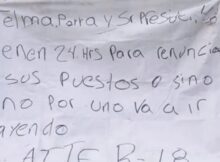 elma, Parra y Sr Presi
enen 24 Hrs Para renuncia
sus Puestos o sino
no Por uno va a ir
ayendo
ATTE B-18